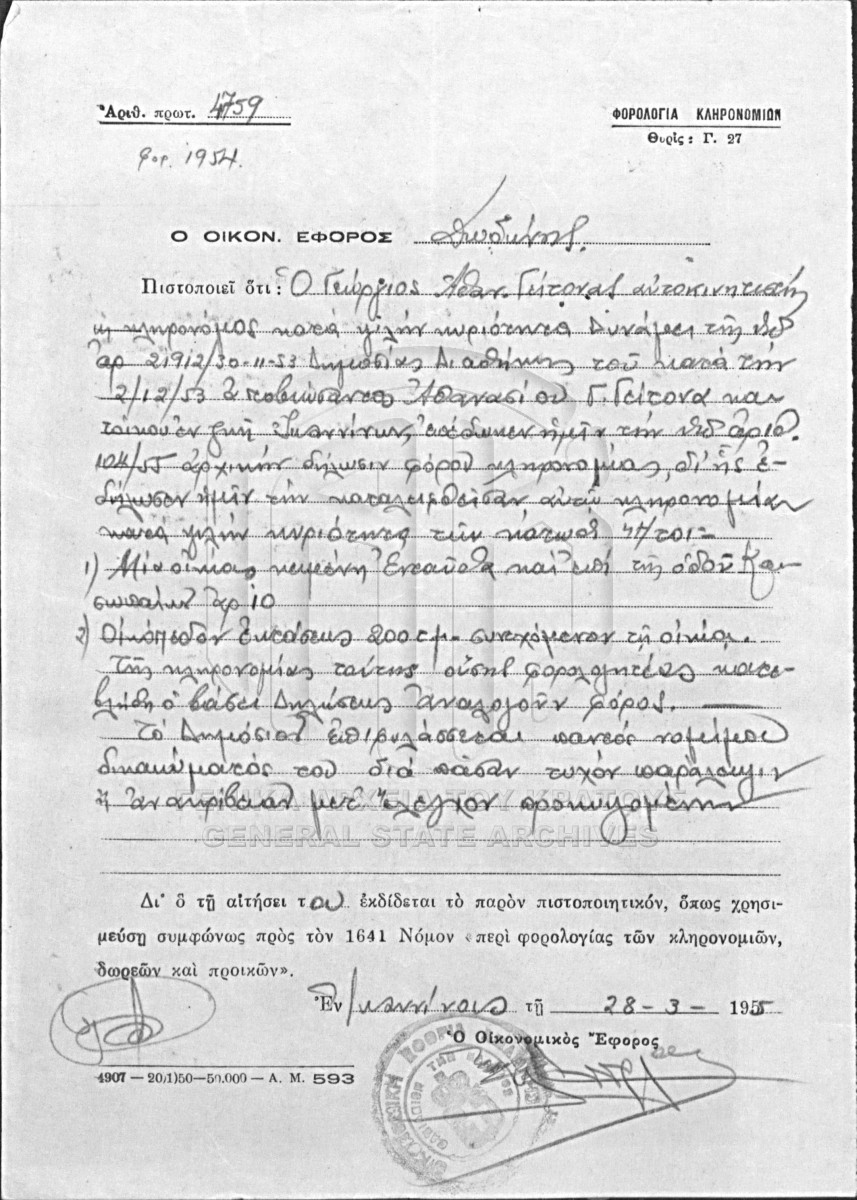 Ἀριθ. πρωτ. 4759
Φορ. 1954
ΦΟΡΟΛΟΓΙΑ ΚΛΗΡΟΝΟΜΙΩΝ
Θυρὶς: Γ. 27
Ο ΟΙΚΟΝ. ΕΦΟΡΟΣ Δωδώνης
Πιστοποιεῖ ὅτι: Ὁ Γεώργιος Ἀθαν. Γείτονας αὐτοκινητιστὴς
κληρονόμος κατὰ ψιλὴν κυριότητα δυνάμει τῆς ὑπ'
ἀρ 21912/30-11-53 Δημοσίας Διαθήκης τοῦ κατὰ τὴν
2/12/53 ἀποβιώσαντος Ἀθανασίου Γ. Γείτονα κα-
τοίκου ἐν ζωῇ Ἰωαννίνων, ἐπέδωκεν ἡμῖν τὴν ὑπ' ἀριθ.
104/55 ἀρχικὴν δήλωσιν φόρου κληρονομίας, δι' ἧς ἐ-
δήλωσεν ἡμῖν τὴν καταλειφθεῖσαν αὐτῷ κληρονομίαν
κατὰ ψιλὴν κυριότητα τῶν κάτωθι ἤτοι:-
1) Μία οἰκίας κειμένη ἐνταῦθα καὶ ἐπὶ τῆς ὁδοῦ
ἀρ 10
2) Οἰκόπεδον ἐκτάσεως 200 τ.μ. συνεχόμενον τῇ οἰκίᾳ.
Τῆς κληρονομίας ταύτης οὔσης φορολογητέας κατε-
βλήθη ὁ βάσει Δηλώσεως ἀναλογοῦν φόρος.
Τὸ Δημόσιον ἐπιφυλάσσεται παντὸς νομίμου
δικαιώματός του διὰ πᾶσαν τυχὸν παράλειψιν
ἢ ἀνακρίβειαν μετ' ἔλεγχον προκυψομένην
ΓΕΝΙΚΑ ΑΡΧΕΙΑ ΤΟΥ ΚΡΑΤΟΥΣ
GENERAL STATE ARCHIVES
Δι' ὃ τῇ αἰτήσει του ἐκδίδεται τὸ παρὸν πιστοποιητικόν, ὅπως χρησι-
μεύσῃ συμφώνως πρὸς τὸν 1641 Νόμον «περὶ φορολογίας τῶν κληρονομιῶν,
δωρεῶν καὶ προικῶν».
Ἐν Ἰωαννίνοις τῇ 28-3-1955
Ὁ Οἰκονομικὸς Ἔφορος
4907 — 20/1)50—50.000 — Α. Μ. 593